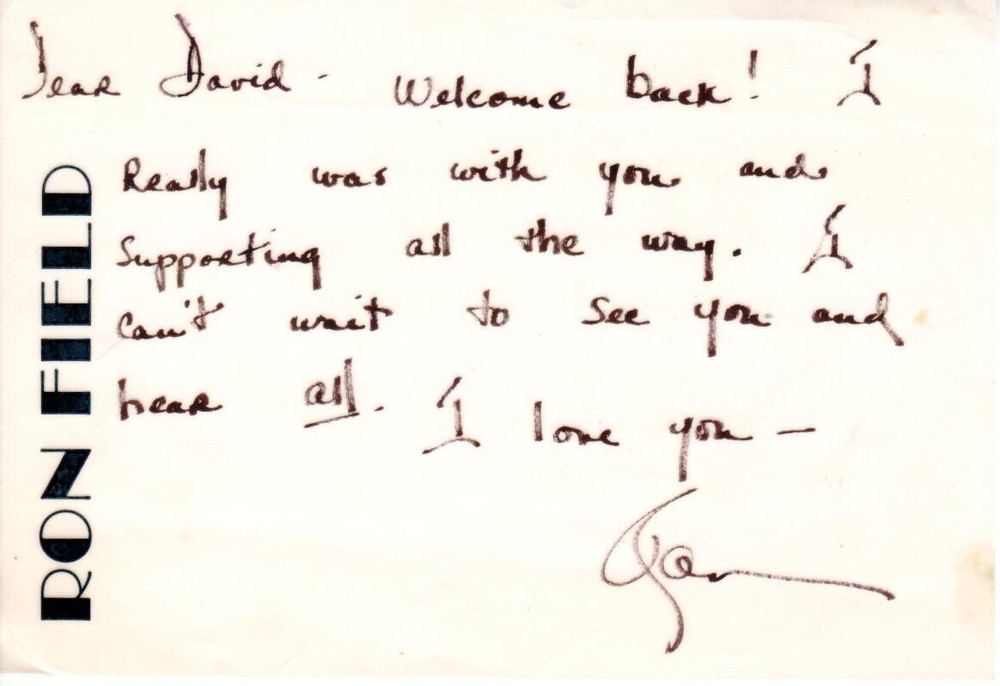 Dear David - Welcome back! I
Really was with you and
Supporting all the way. I
can't wait to see you and
hear all. I love you —
RON FIELD